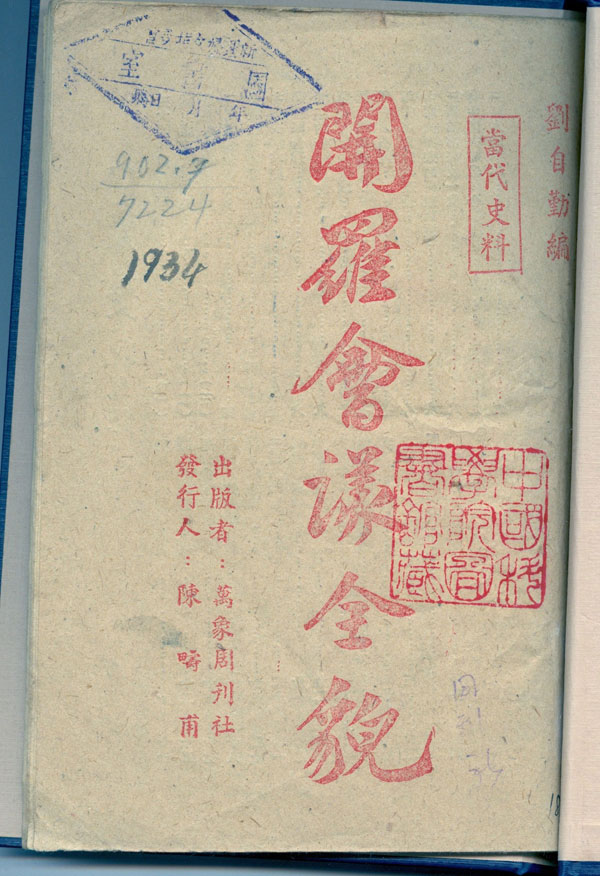 劉自勤編
當代史料
開羅會議全貌
出版者：萬象周刊社
發行人：陳疇甫
中國科
學院圖
書館藏
圖
室
年 月 日
902.9
7224
1934
18